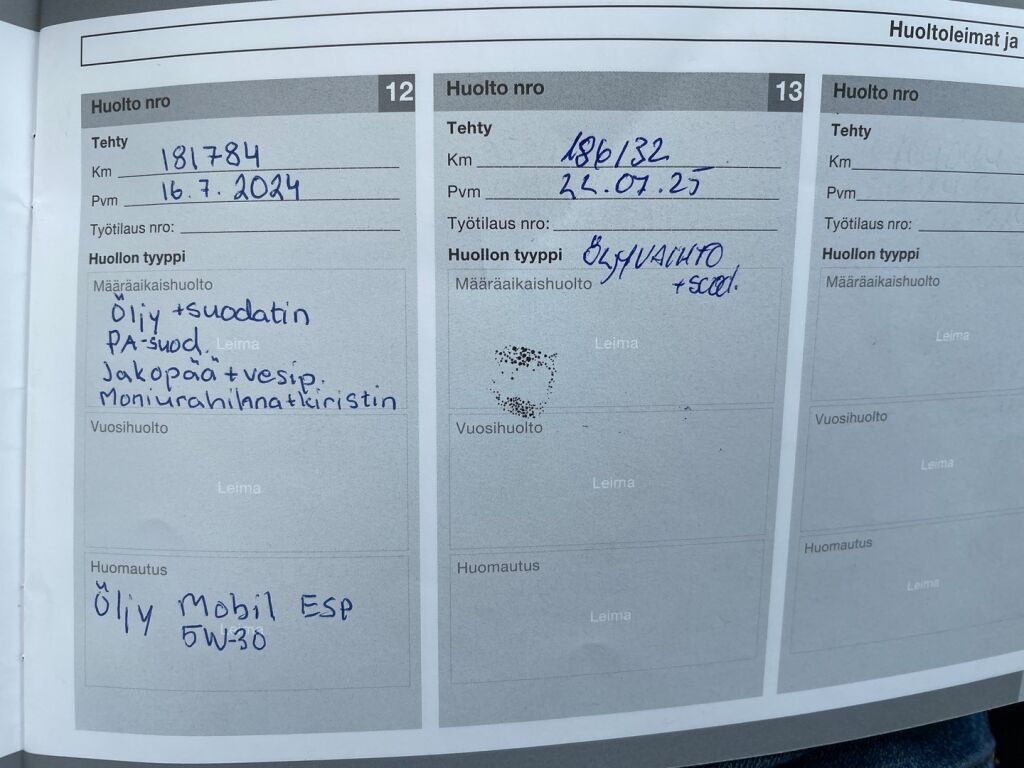 Huoltoleimat ja
Huolto nro 12
Tehty
Km 181784
Pvm 16.7.2024
Työtilaus nro:
Huollon tyyppi
Määräaikaishuolto
Öljy +suodatin
PA-suod.
Leima
Jakopää+vesip.
Moniurahihna+kiristin
Vuosihuolto
Leima
Huomautus
Öljy Mobil ESP
5W-30
Huolto nro 13
Tehty
Km 186132
Pvm 22.07.25
Työtilaus nro:
Huollon tyyppi ÖLJYVAIHTO
+suod.
Määräaikaishuolto
Leima
Vuosihuolto
Leima
Huomautus
Leima
Huolto nro
Tehty
Km
Pvm
Työtilaus nro:
Huollon tyyppi
Määräaikaishuolto
Leima
Vuosihuolto
Leima
Huomautus
Leima